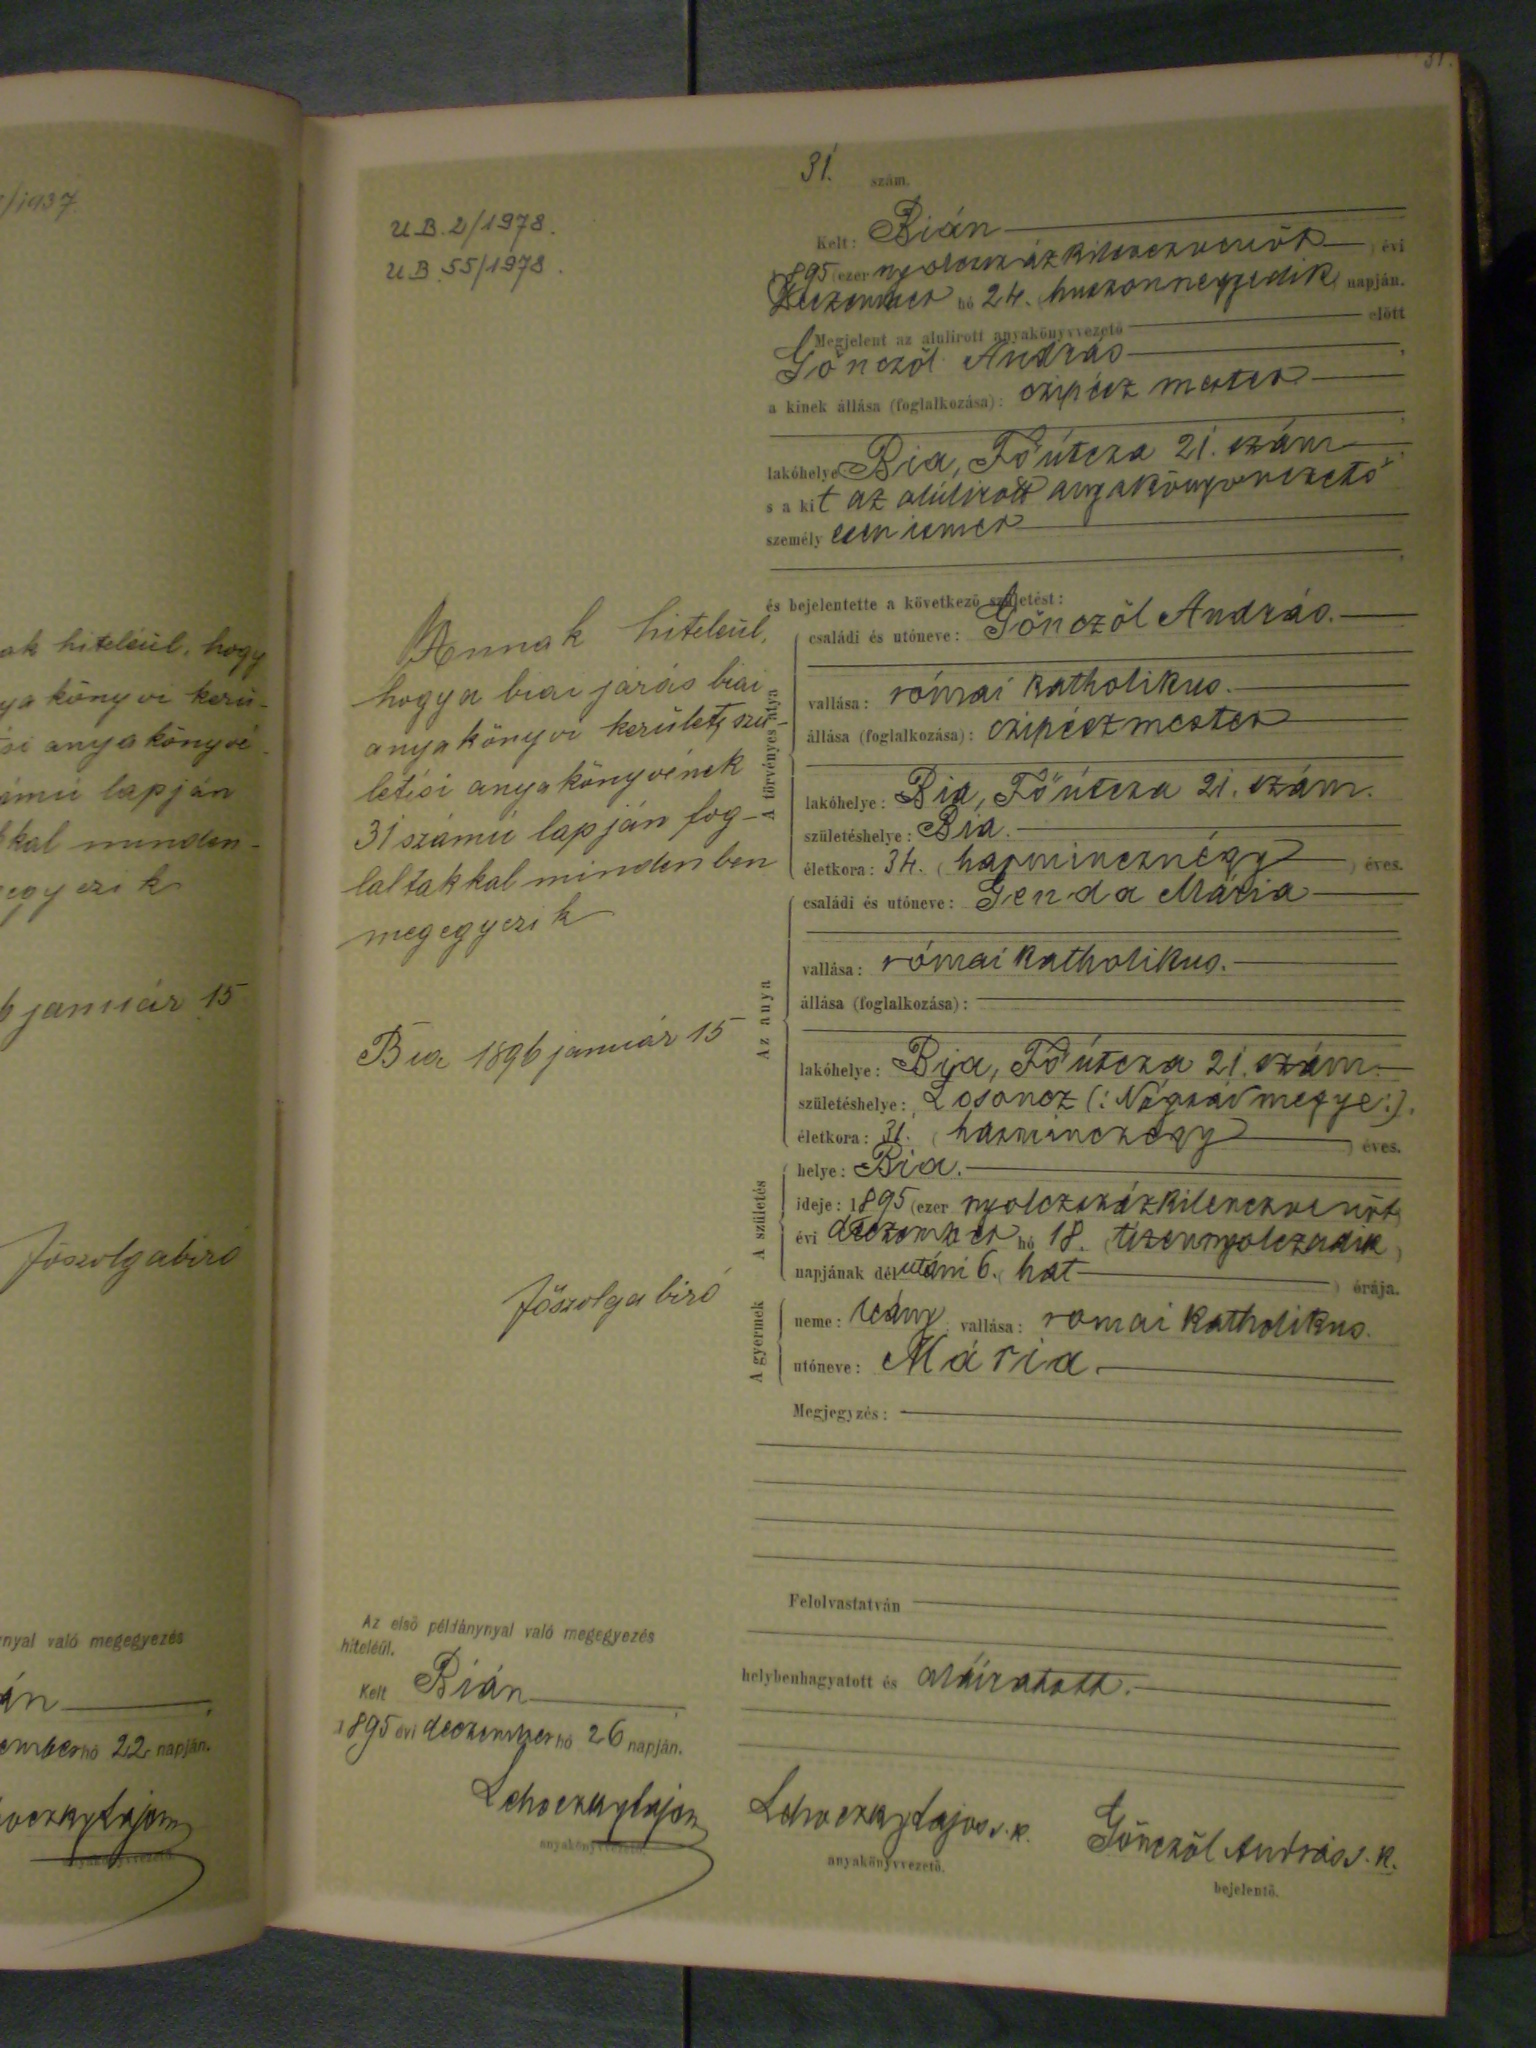 /1937
ak hiteléül, hogy
ya könyvi kerü-
si anyakönyvé
ámú lapján
kal minden-
egyezik
6 január 15
főszolgabiró
nyal való megegyezés
án
ember hó 22 napján.
anyakönyvvezető.
31.
U.B. 2/1978.
U.B. 55/1978.
Annak hiteleül,
hogy a biai járás biai
anyakönyvi kerület szü-
letési anyakönyvének
31 számú lapján fog-
laltakkal mindenben
megegyezik
Bia 1896 január 15
főszolgabiró
Az első példánynyal való megegyezés
hiteléül.
Kelt Bián
1895 évi deczember hó 26 napján.
Lajos
anyakönyvvezető.
31. szám.
Kelt: Bián
1895 (ezer nyolczszázkilenczvenöt) évi
Deczember hó 24. (huszonnegyedik) napján.
Megjelent az alulirott anyakönyvvezető előtt
Gönczöl András,
a kinek állása (foglalkozása): czipész mester
lakóhelye Bia, Fő útcza 21. szám,
s a kit az alúlirott anyakönyvvezető
személyesen ismer,
és bejelentette a következő születést:
A törvényes atya
családi és utóneve: Gönczöl András.
vallása: római katholikus.
állása (foglalkozása): czipészmester
lakóhelye: Bia, Fő útcza 21. szám.
születéshelye: Bia.
életkora: 34. (harmincznégy) éves.
Az anya
családi és utóneve: Genda Mária
vallása: római katholikus.
állása (foglalkozása):
lakóhelye: Bia, Fő útcza 21. szám.
születéshelye: Losoncz (: Nógrád megye :).
életkora: 31. (harminczegy) éves.
A születés
helye: Bia.
ideje: 1895 (ezer nyolczszázkilenczvenöt)
évi deczember hó 18. (tizennyolczadik)
napjának délutáni 6. (hat) órája.
A gyermek
neme: leány vallása: romai katholikus.
utóneve: Mária.
Megjegyzés:
Felolvastatván
helybenhagyatott és aláiratott.
Lajos s. k.
anyakönyvvezető.
Gönczöl András s. k.
bejelentő.